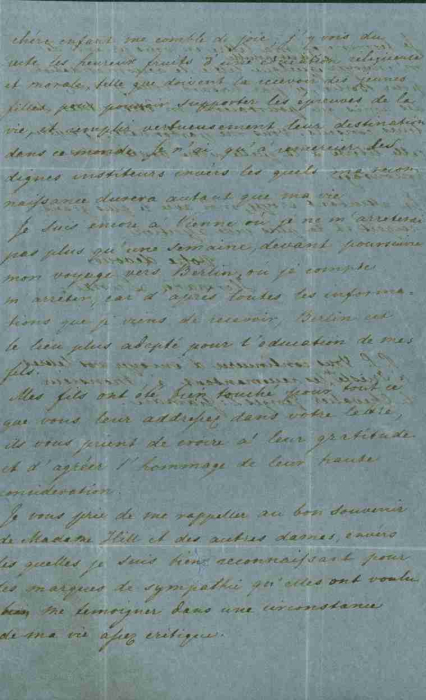 chère enfant me comble de joie; j'y vois du
reste les heureux fruits d' religieuse
et morale, telle que doivent la recevoir des jeunes
filles, pour pouvoir supporter les épreuves de la
vie, et remplir vertueusement leur destination
dans ce monde. Je n'ai qu'à remercier les
dignes instituteurs envers les quels ma recon
naissance durera autant que ma vie.
Je suis encore à Vienne où je ne m'arreterai
pas plus qu'une semaine, devant poursuivre
mon voyage vers Berlin, ou je compte
m'arrêter, car d'après toutes les informa-
tions que je viens de recevoir, Berlin est
le lieu plus adopté pour l'education de mes
fils.
Mes fils ont été bien touché pour tout ce
que vous leur addressez dans votre lettre,
ils vous prient de croire à leur gratitude
et d'agréer l'hommage de leur haute
considération.
Je vous prie de me rappeller au bon souvenir
de Madame Hill et des autres dames, envers
les quelles je suis bien reconnaissant pour
les marques de sympathie qu'elles ont voulu
me temoigner dans une circonstance
de ma vie assez critique.